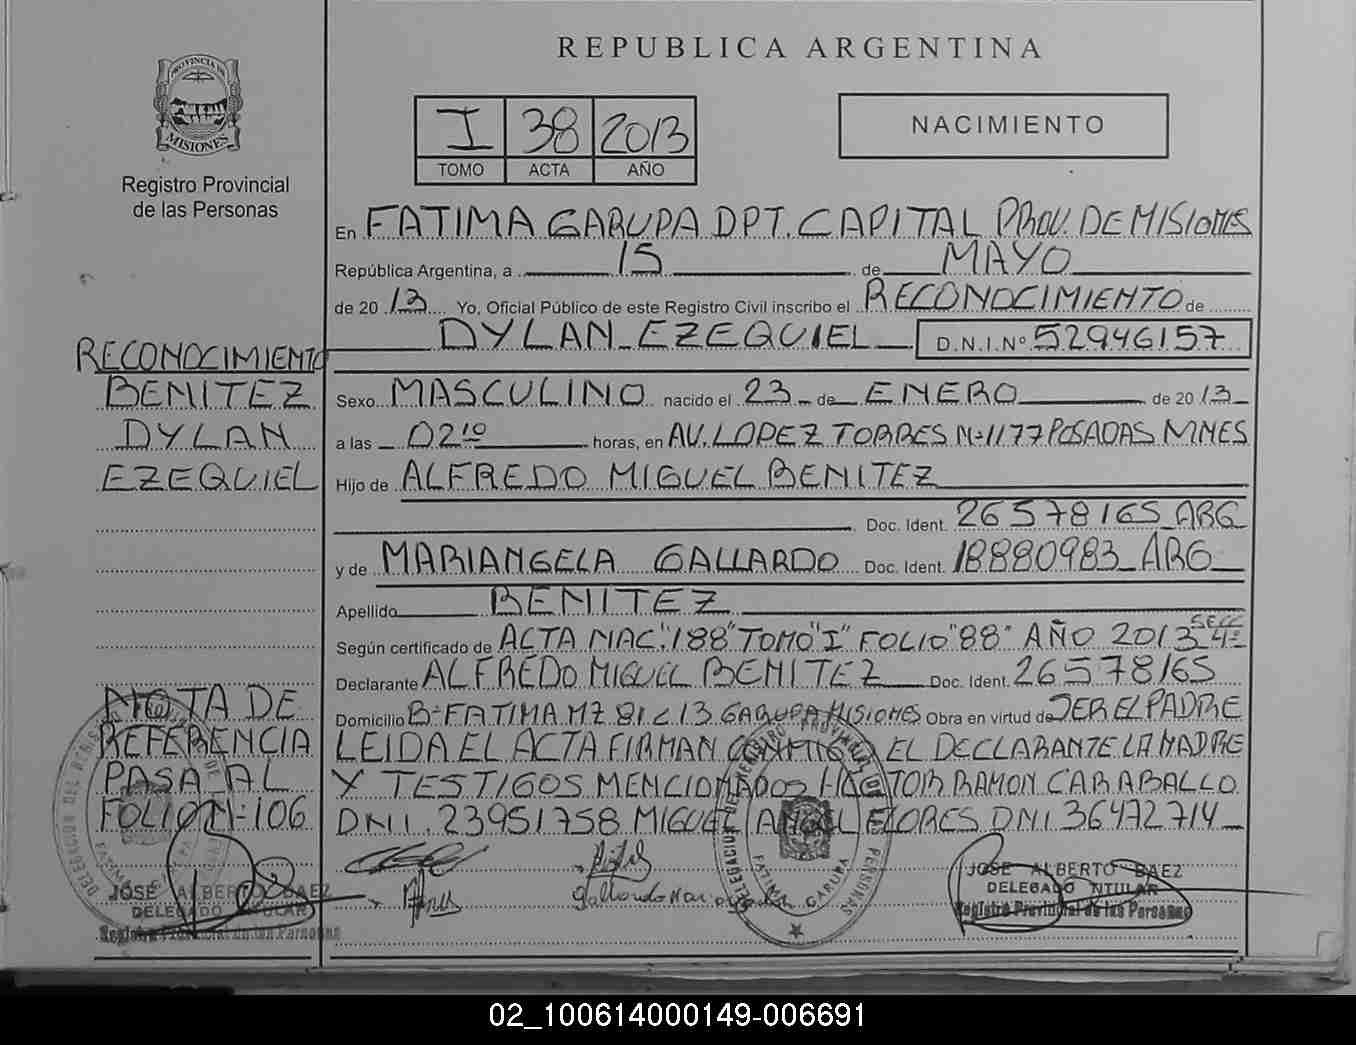 REPUBLICA ARGENTINA
PROVINCIA DE
MISIONES
Registro Provincial
de las Personas
I 38 2013
TOMO ACTA AÑO
NACIMIENTO
En FATIMA GARUPA DPT. CAPITAL PROV. DE MISIONES
República Argentina, a 15 de MAYO
de 2013 Yo, Oficial Público de este Registro Civil inscribo el RECONOCIMIENTO de
DYLAN EZEQUIEL D.N.I.Nº 52946157
RECONOCIMIENTO
BENITEZ
DYLAN
EZEQUIEL
Sexo MASCULINO nacido el 23 de ENERO de 2013
a las 02¹⁰ horas, en AV. LOPEZ TORRES Nº 1177 POSADAS MNES
Hijo de ALFREDO MIGUEL BENITEZ
Doc. Ident. 26578165 ARG
y de MARIANGELA GALLARDO Doc. Ident. 18880983 ARG
Apellido BENITEZ
Según certificado de ACTA NAC. "188" TOMO "I" FOLIO "88" AÑO 2013 SECC 4º
Declarante ALFREDO MIGUEL BENITEZ Doc. Ident. 26578165
Domicilio Bº FATIMA MZ 81 C 13 GARUPA MISIONES Obra en virtud de SER EL PADRE
LEIDA EL ACTA FIRMAN CONMIGO EL DECLARANTE LA MADRE
Y TESTIGOS MENCIONADOS HECTOR RAMON CARABALLO
DNI. 23951758 MIGUEL ANGEL FLORES DNI 36472714
NOTA DE
REFERENCIA
PASA AL
FOLIO Nº 106
JOSE ALBERTO BAEZ
DELEGADO TITULAR
Registro Provincial de las Personas
Gallardo Mariangela
DELEGACION DEL REGISTRO PROVINCIAL DE PERSONAS
FATIMA GARUPA
JOSE ALBERTO BAEZ
DELEGADO TITULAR
Registro Provincial de las Personas
02_100614000149-006691